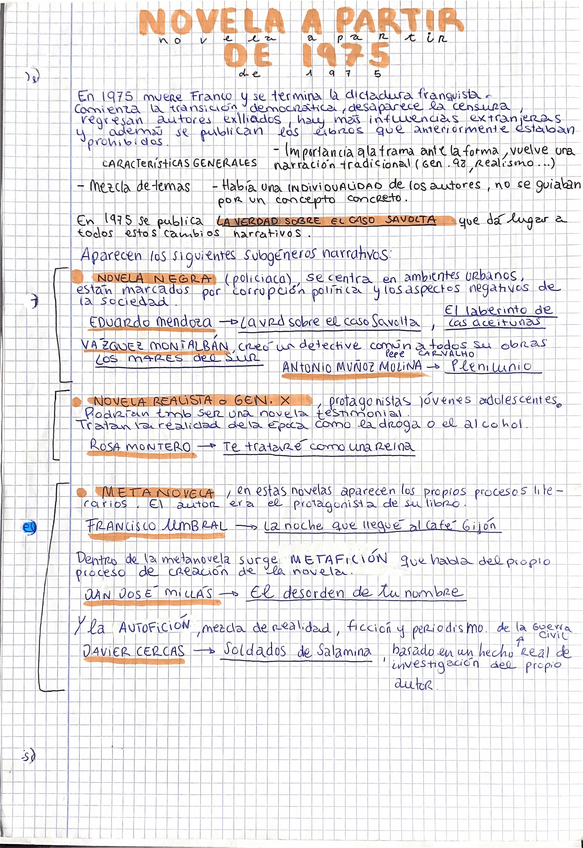 NOVELA A PARTIR
novela a partir
DE 1975
de 1975
En 1975 muere Franco y se termina la dictadura franquista.
Comienza la transición democrática, desaparece la censura,
regresan autores exiliados, hay más influencias extranjeras
y además se publican los libros que anteriormente estaban
prohibidos.
- Importancia a la trama ante la forma, vuelve una
CARACTERÍSTICAS GENERALES narración tradicional (Gen. 98, Realismo...)
- Mezcla de temas - Había una INDIVIDUALIDAD de los autores, no se guiaban
por un concepto concreto.
En 1975 se publica LA VERDAD SOBRE EL CASO SAVOLTA que dá lugar a
todos estos cambios narrativos.
Aparecen los siguientes subgéneros narrativos:
NOVELA NEGRA (policiaca), se centra en ambientes urbanos,
están marcados por corrupción política y los aspectos negativos de
la sociedad.
EDUARDO MENDOZA → La vrd sobre el caso Savolta, El laberinto de
las aceitunas
VÁZQUEZ MONTALBÁN, creó un detective común a todos su obras
PEPE CARVALHO
LOS MARES DEL SUR
ANTONIO MUÑOZ MOLINA → Plenilunio
NOVELA REALISTA o GEN. X, protagonistas jóvenes adolescentes.
Podrían tmb ser una novela testimonial.
Tratan la realidad de la época como la droga o el alcohol.
ROSA MONTERO → Te trataré como una reina
METANOVELA, en estas novelas aparecen los propios procesos lite-
rarios. El autor era el protagonista de su libro.
FRANCISCO UMBRAL → La noche que llegué al Café Gijón
Dentro de la metanovela surge METAFICIÓN que habla del propio
proceso de creación de la novela.
JUAN JOSÉ MILLÁS → El desorden de tu nombre
Y la AUTOFICIÓN, mezcla de realidad, ficción y periodismo. de la guerra
civil
JAVIER CERCAS → Soldados de Salamina, basado en un hecho real de
investigación del propio
autor.